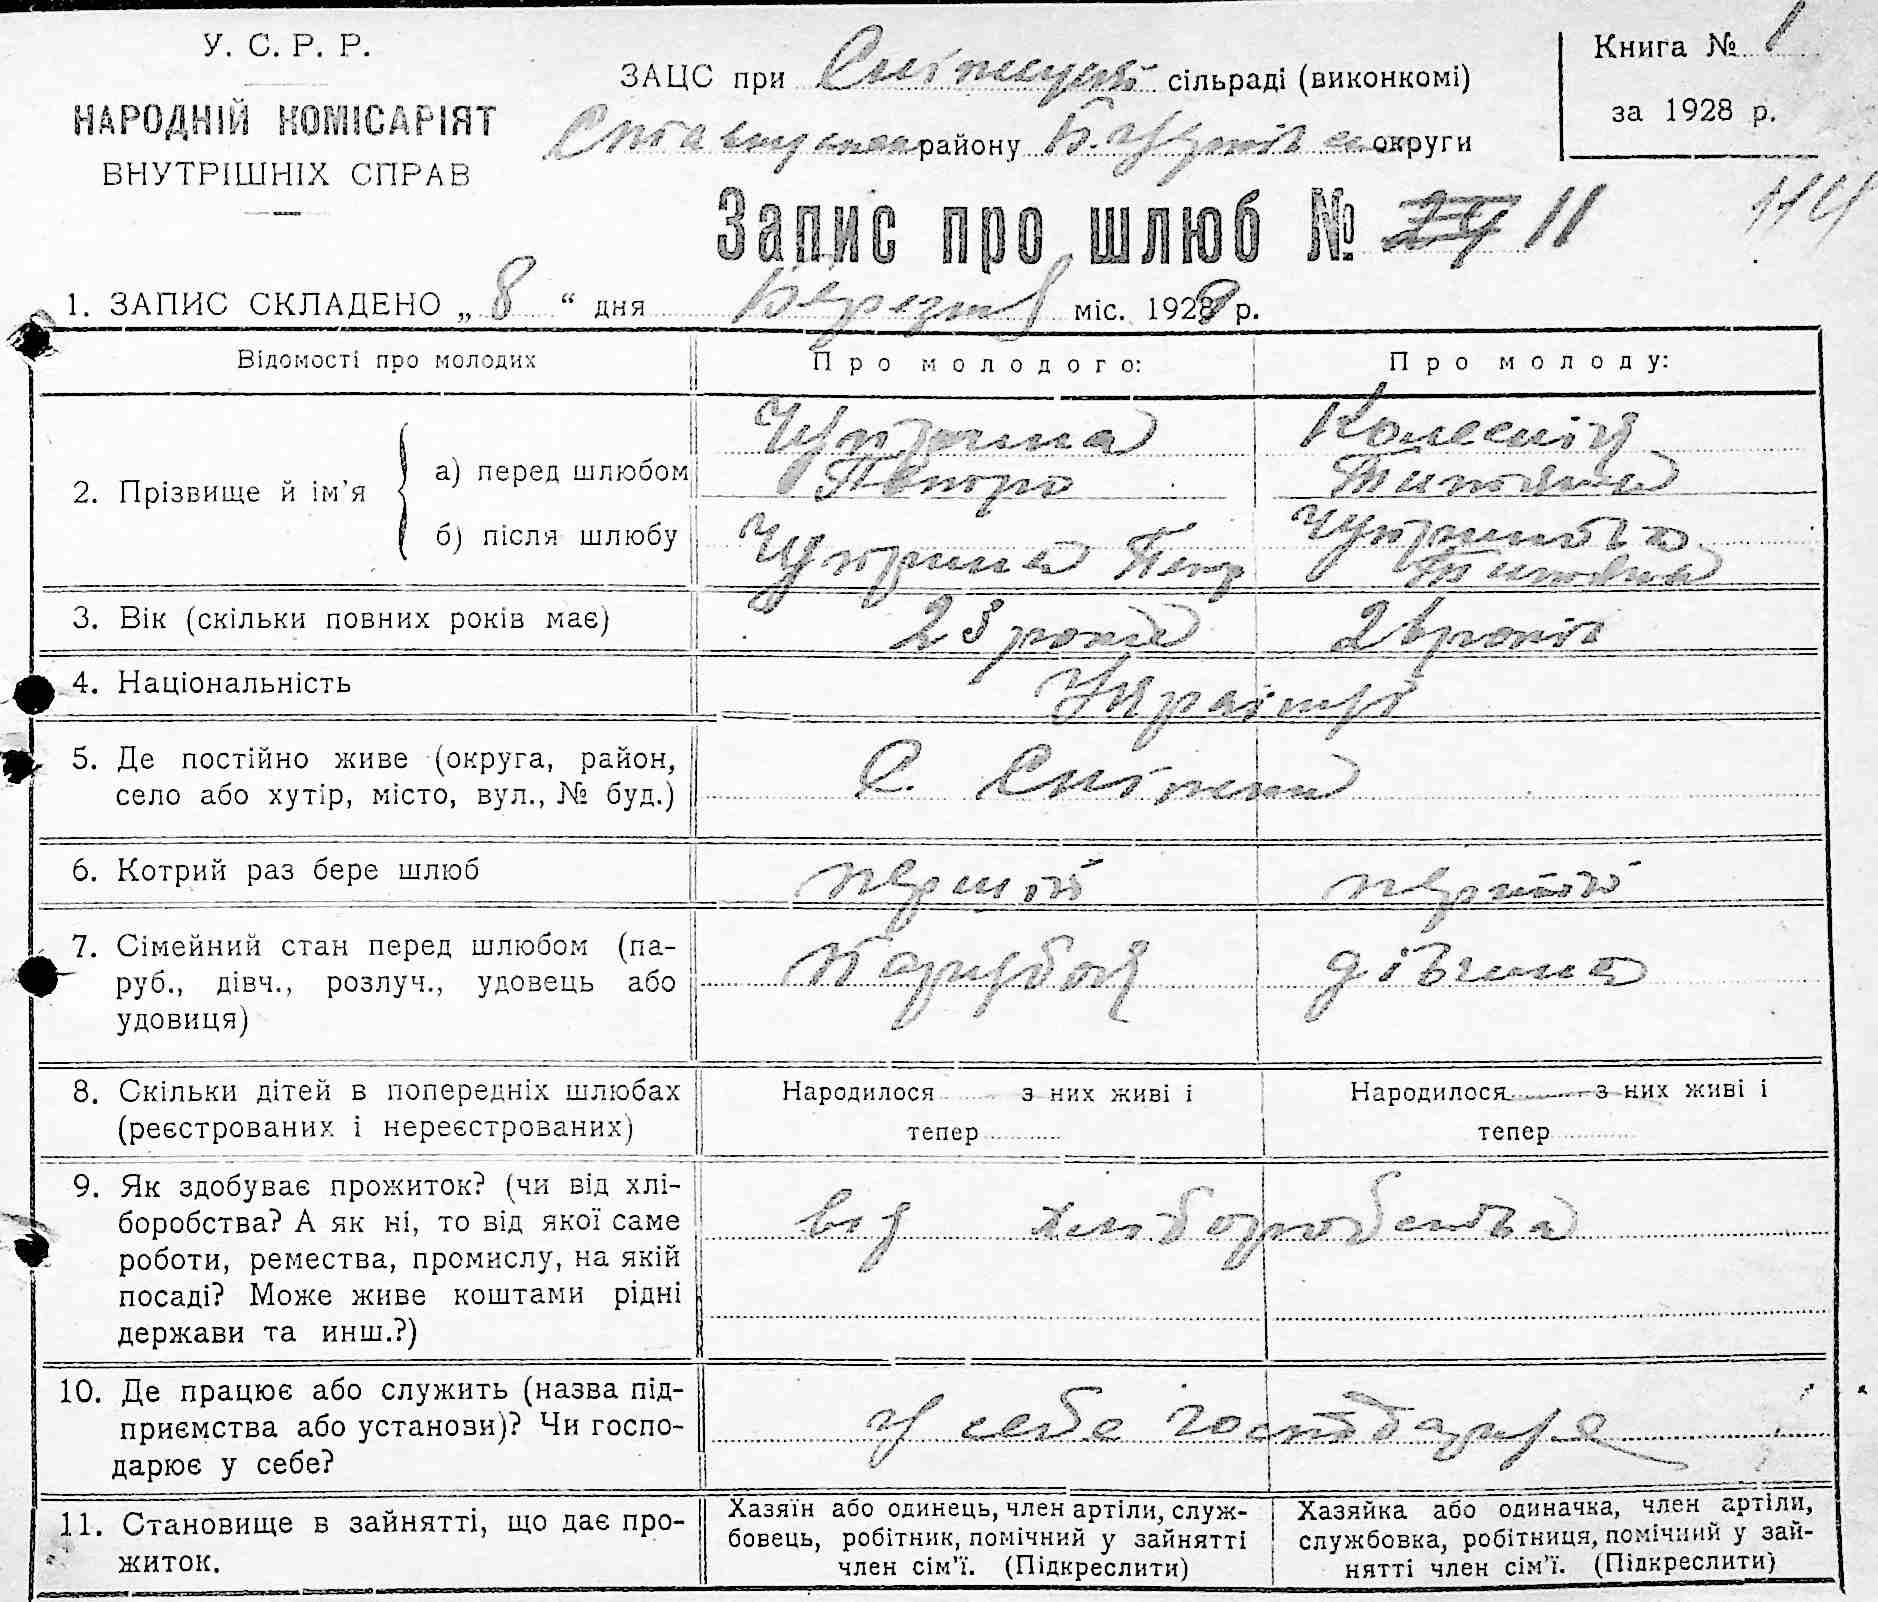 У. С. Р. Р.
НАРОДНІЙ КОМІСАРІЯТ
ВНУТРІШНІХ СПРАВ
ЗАЦС при сільраді (виконкомі)
району Б. Церків округи
Книга № 1
за 1928 р.
114
Запис про шлюб № 11
1. ЗАПИС СКЛАДЕНО „ 8 “ дня Березня міс. 1928 р.
Відомості про молодих
Про молодого:
Про молоду:
2. Прізвище й ім’я
а) перед шлюбом
б) після шлюбу
Чуприна
Петро
Чуприна Петр
Колесник
Чупринова
3. Вік (скільки повних років має)
23 роки
років
4. Національність
Українці
5. Де постійно живе (округа, район,
село або хутір, місто, вул., № буд.)
С. Сніжки
6. Котрий раз бере шлюб
перший
перший
7. Сімейний стан перед шлюбом (па-
руб., дівч., розлуч., удовець або
удовиця)
Парубок
дівчина
8. Скільки дітей в попередніх шлюбах
(реєстрованих і нереєстрованих)
Народилося з них живі і
тепер
Народилося з них живі і
тепер
9. Як здобуває прожиток? (чи від хлі-
боробства? А як ні, то від якої саме
роботи, ремества, промислу, на якій
посаді? Може живе коштами рідні
держави та инш.?)
від хліборобства
10. Де працює або служить (назва під-
приємства або установи)? Чи госпо-
дарює у себе?
у себе господарує
11. Становище в зайнятті, що дає про-
житок.
Хазяїн або одинець, член артіли, служ-
бовець, робітник, помічний у зайнятті
член сім’ї. (Підкреслити)
Хазяйка або одиначка, член артіли,
службовка, робітниця, помічний у зай-
нятті член сім’ї. (Підкреслити)